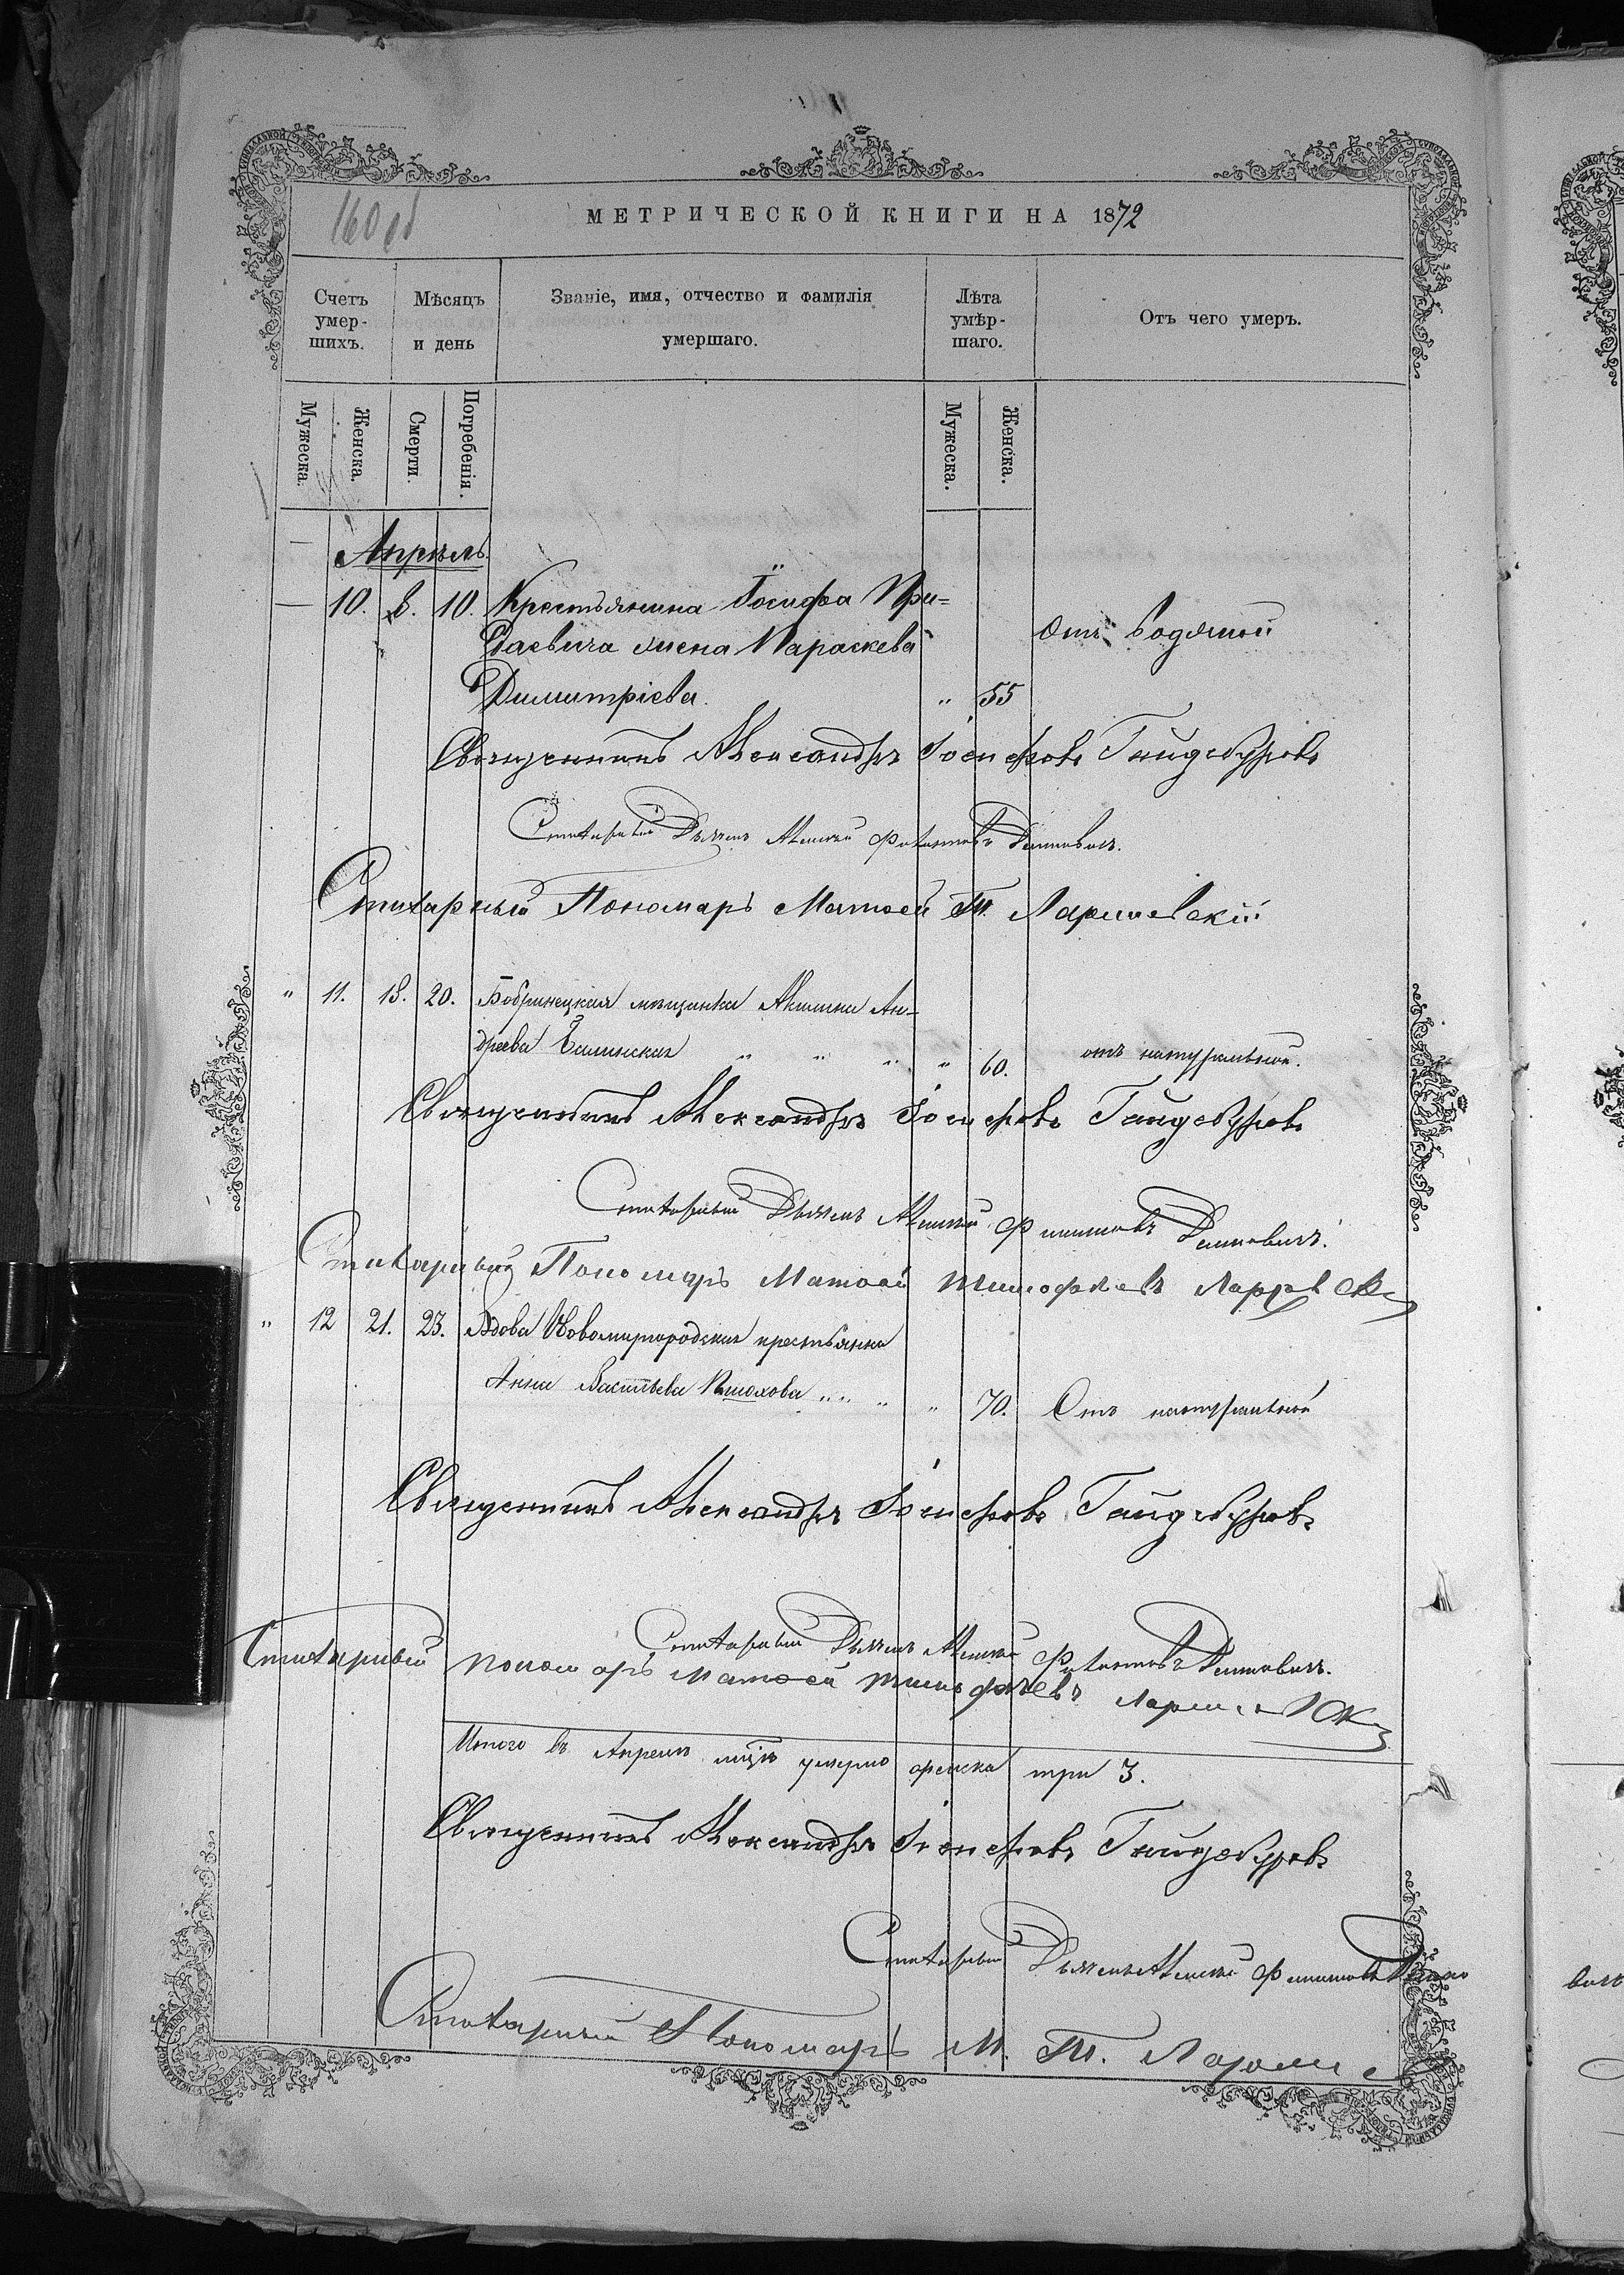 160 об
МЕТРИЧЕСКОЙ КНИГИ НА 1872
Счетъ умер-шихъ.
Мѣсяцъ и день
Званіе, имя, отчество и фамилія умершаго.
Лѣта умѣр-шаго.
Отъ чего умеръ.
Мужеска.
Женска.
Смерти.
Погребенія.
Мужеска.
Женска.
Апрѣль
— 10. 8. 10. Крестьянина Іосифа При=
даевича жена Параскева Отъ водяной
Димитріева. " 55
Священникъ Александръ Іосифовъ Гайдебуровъ
Стихарный Дьячекъ Алексѣй
Стихарный Пономарь Матѳей Т.
" 11. 18. 20. Бобринецкая мѣщанка Акилина Ан-
дреева " " " " 60. отъ натуральной.
Священникъ Александръ Іосифовъ Гайдебуровъ
Стихарный Дьячекъ Алексѣй
Стихарный Пономарь Матѳей Тимофѣевъ
" 12 21. 23. Вдова Новомиргородская крестьянка
Анна Васильева " " " " 70. Отъ натуральной
Священникъ Александръ Іосифовъ Гайдебуровъ
Стихарный Дьячекъ Алексѣй
Стихарный пономарь Матѳей Тимофѣевъ
Итого въ Апрелѣ мцѣ умерло женска три 3.
Священникъ Александръ Іосифовъ Гайдебуровъ
Стихарный Дьячекъ Алексѣй
Стихарный Пономарь М. Т.